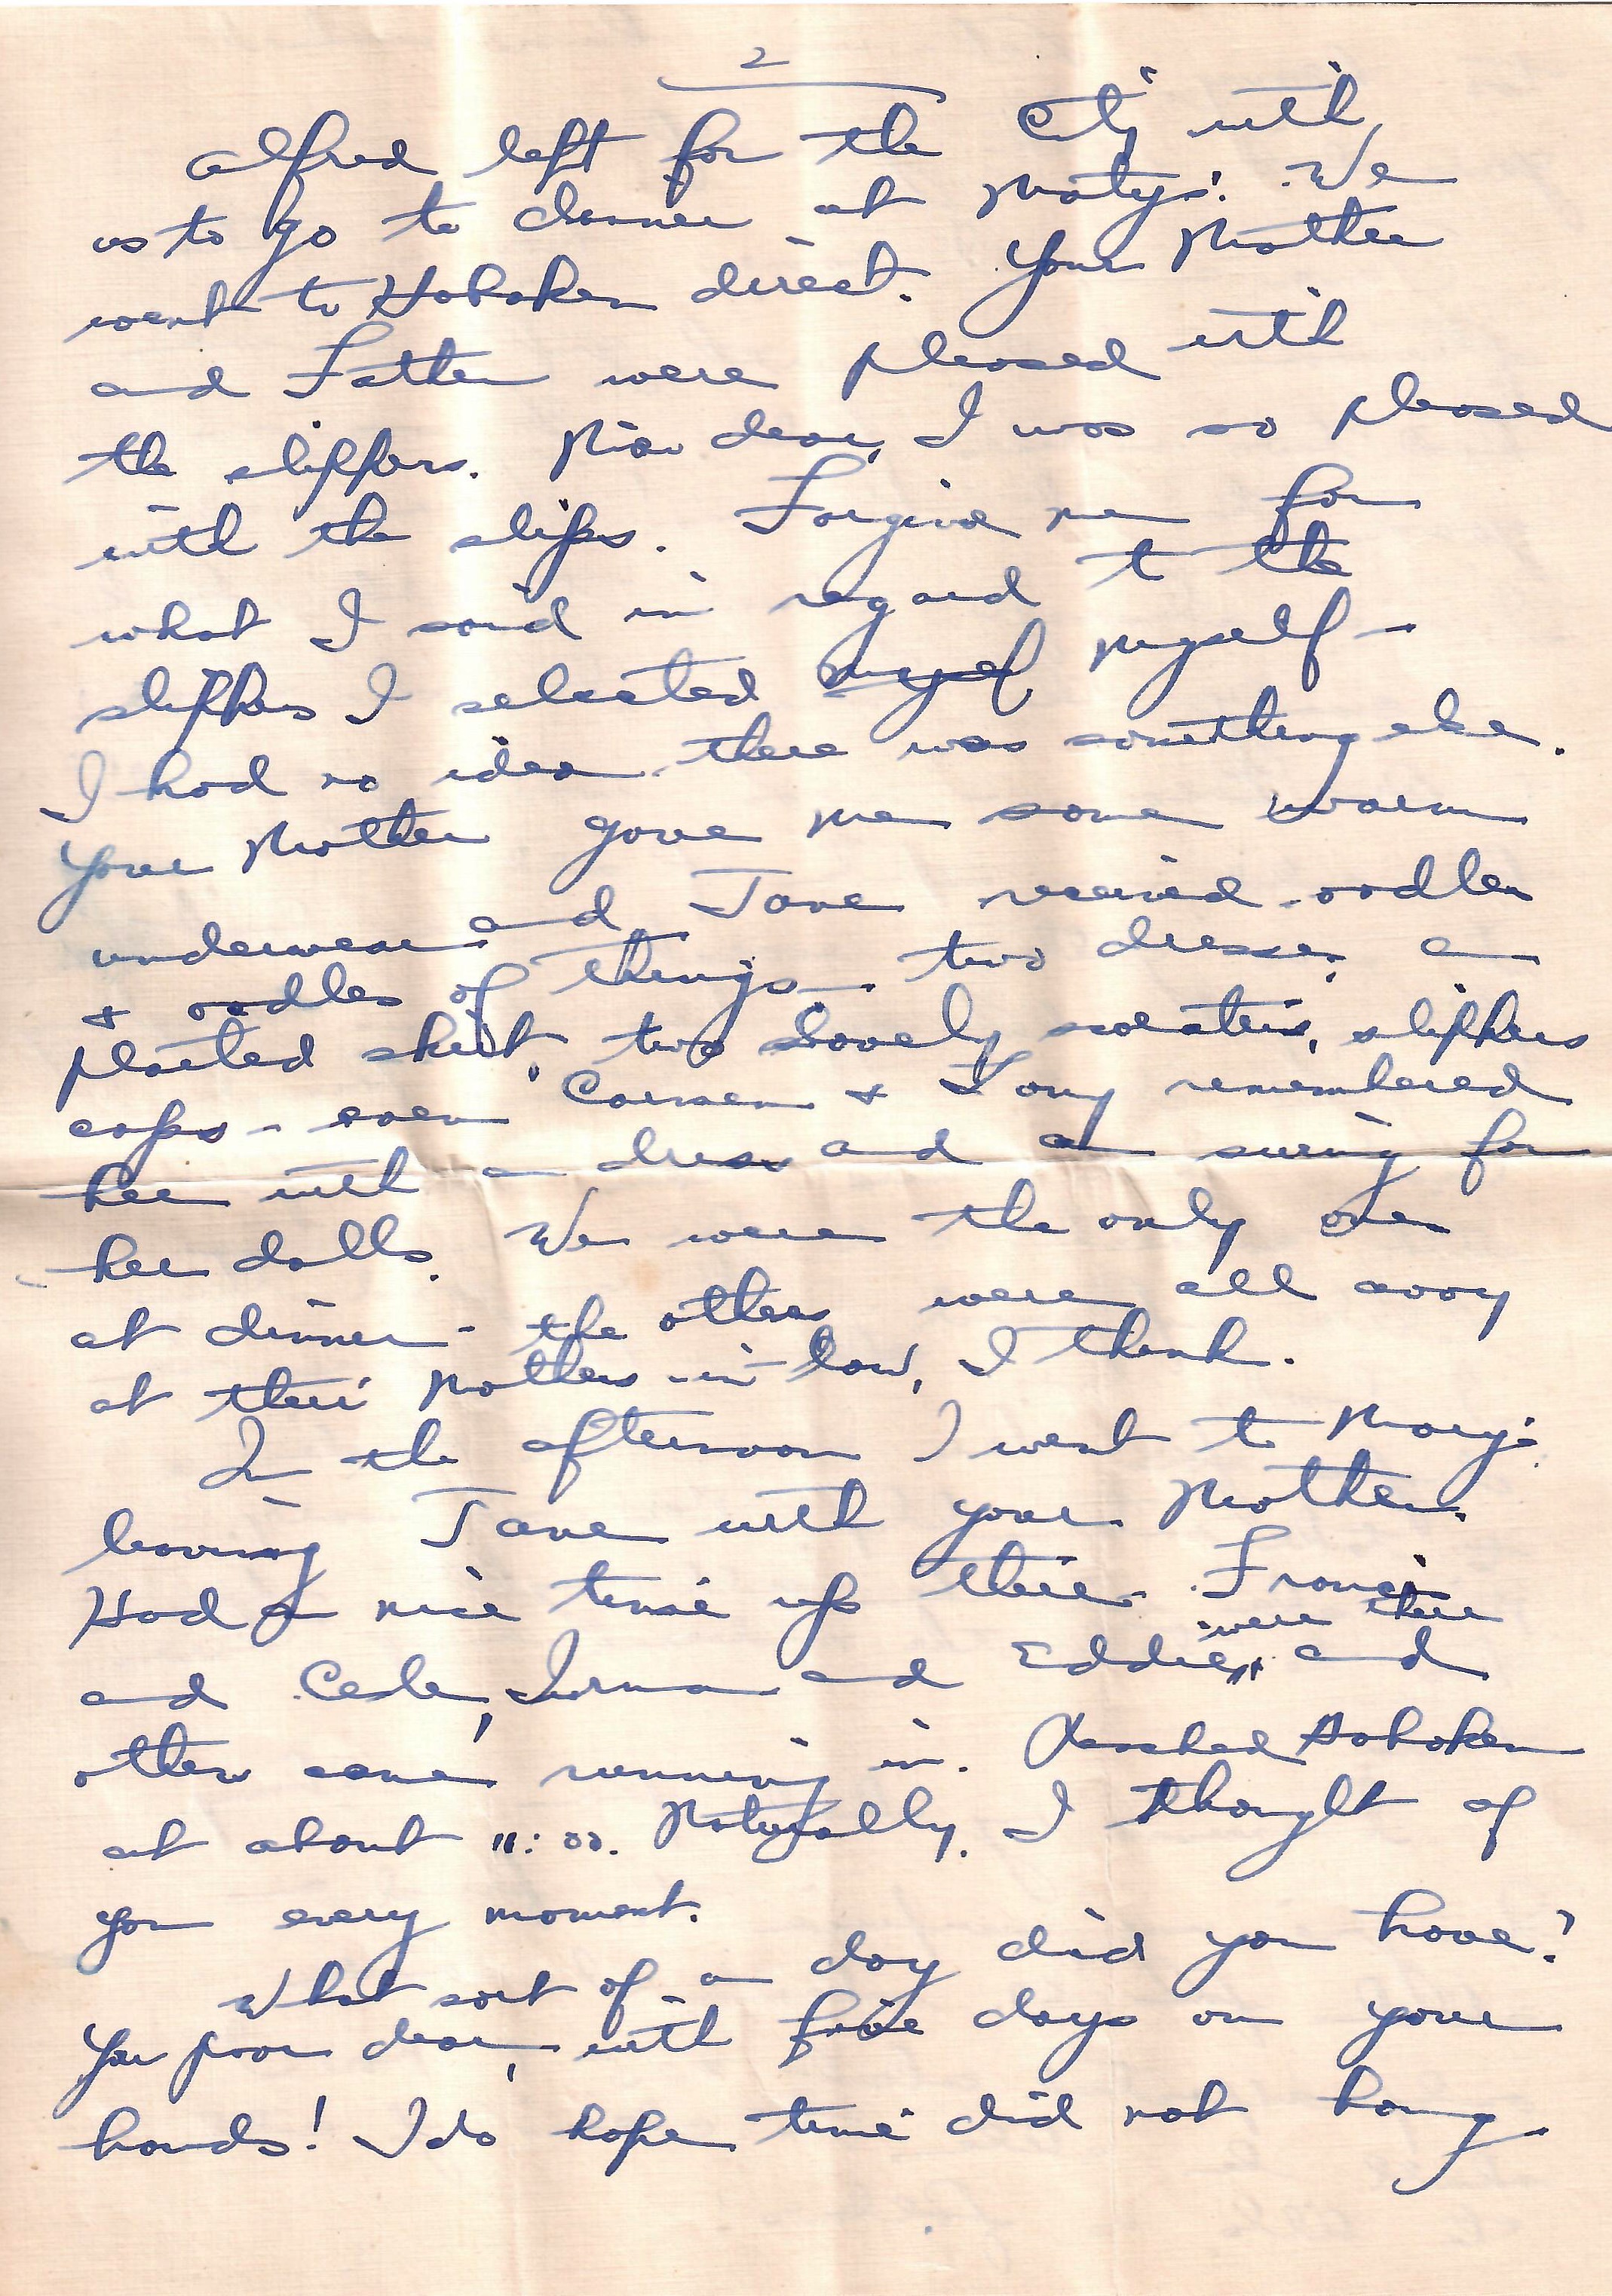 2
Alfred left for the City with
us to go to dinner at Matys'. We
went to Hoboken direct. Your Mother
and Father were pleased with
the slippers. Now dear, I was so pleased
with the slips. Forgive me for
what I said in regard to the
slippers I selected myself myself –
I had no idea there was something else.
Your Mother gave me some warm
underwear and Jane received oodles
& oodles of things – two dresses, a
plaited skirt, two lovely sweaters, slippers
caps – even Carmen & Tony remembered
her with a dress and a swing for
her dolls. We were the only one
at dinner – the others were all away
at their Mothers-in-law, I think.
In the afternoon I went to Mary's
leaving Jane with your Mother.
Had a nice time up there. Francis
were there
and Cesle, Irma and Eddie, and
others came running in. Reached Hoboken
at about 11:00. Naturally, I thought of
you every moment.
What sort of a day did you have?
You poor dear, with five days on your
hands! I do hope time did not hang